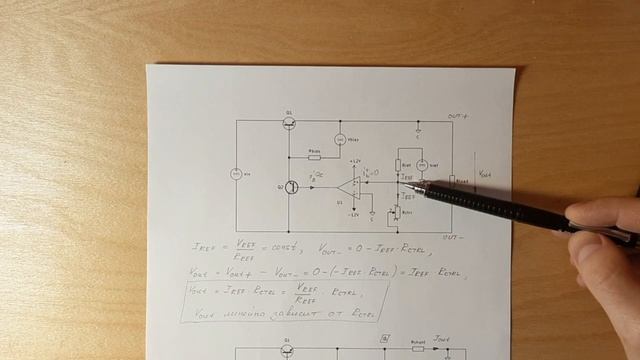 Q1
OUT+
Vbias
Rbias
+12V
Rref
Vref
Vin
I_REF
Vout
Q2
U1
I_REF
-12V
Rctrl
OUT-
I_REF = V_REF / R_REF = const, V_OUT- = 0 - I_REF · R_CTRL,
V_OUT = V_OUT+ - V_OUT- = 0 - (-I_REF · R_CTRL) = I_REF · R_CTRL,
V_OUT = I_REF · R_CTRL = V_REF / R_REF · R_CTRL,
V_OUT линейно зависит от R_CTRL
Q1
Rshunt
Iout